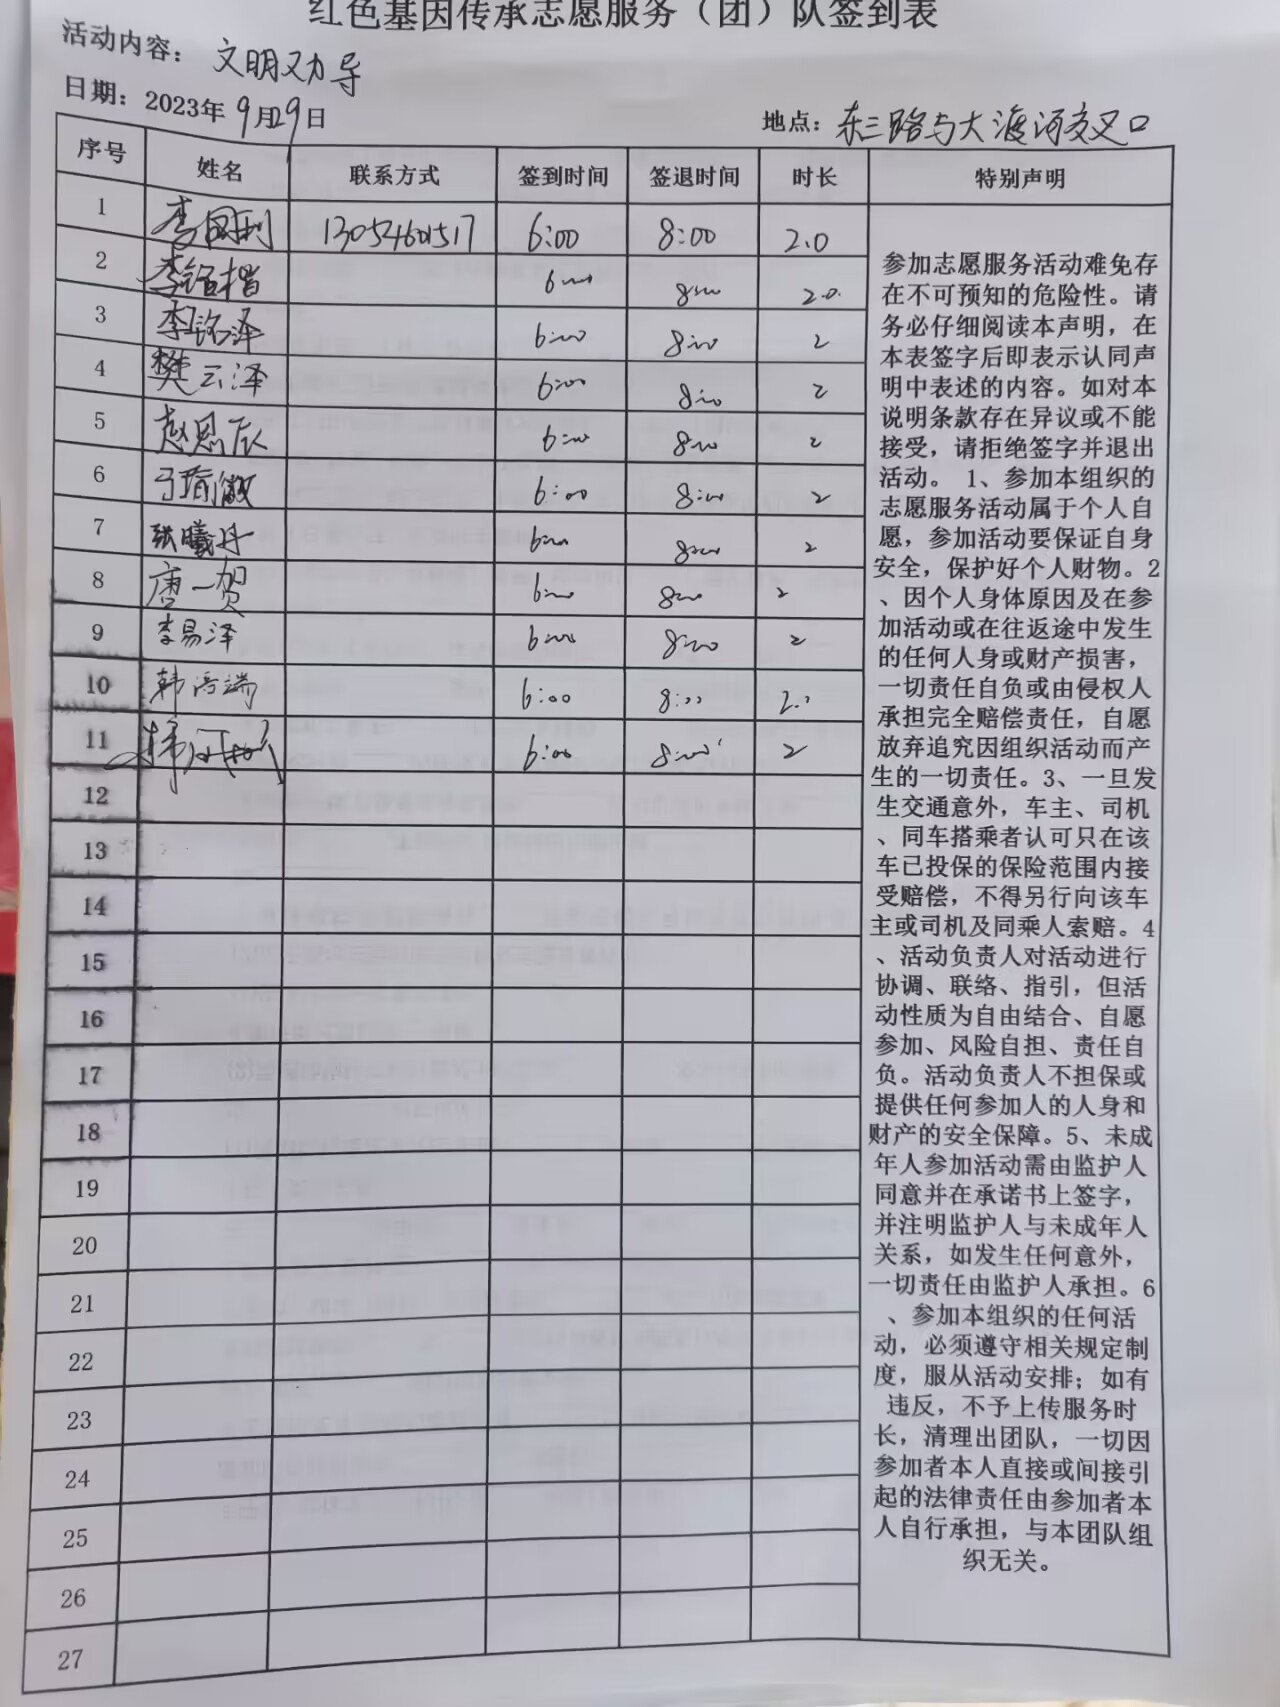 红色基因传承志愿服务（团）队签到表
活动内容： 文明劝导
日期：2023年9月29日
地点：东三路与大渡河交叉口
序号 姓名 联系方式 签到时间 签退时间 时长 特别声明
1 李国利 13054601517 6:00 8:00 2.0
2 6:00 8:00 2.0
3 李铭泽 6:00 8:00 2
4 樊云泽 6:00 8:00 2
5 赵恩辰 6:00 8:00 2
6 6:00 8:00 2
7 张曦丹 6:00 8:00 2
8 唐一贺 6:00 8:00 2
9 李易泽 6:00 8:00 2
10 6:00 8:00 2.
11 6:00 8:00 2
12
13
14
15
16
17
18
19
20
21
22
23
24
25
26
27
参加志愿服务活动难免存
在不可预知的危险性。请
务必仔细阅读本声明，在
本表签字后即表示认同声
明中表述的内容。如对本
说明条款存在异议或不能
接受，请拒绝签字并退出
活动。 1、参加本组织的
志愿服务活动属于个人自
愿，参加活动要保证自身
安全，保护好个人财物。2
、因个人身体原因及在参
加活动或在往返途中发生
的任何人身或财产损害，
一切责任自负或由侵权人
承担完全赔偿责任，自愿
放弃追究因组织活动而产
生的一切责任。3、一旦发
生交通意外，车主、司机
、同车搭乘者认可只在该
车已投保的保险范围内接
受赔偿，不得另行向该车
主或司机及同乘人索赔。4
、活动负责人对活动进行
协调、联络、指引，但活
动性质为自由结合、自愿
参加、风险自担、责任自
负。活动负责人不担保或
提供任何参加人的人身和
财产的安全保障。5、未成
年人参加活动需由监护人
同意并在承诺书上签字，
并注明监护人与未成年人
关系，如发生任何意外，
一切责任由监护人承担。6
、参加本组织的任何活
动，必须遵守相关规定制
度，服从活动安排；如有
违反，不予上传服务时
长，清理出团队，一切因
参加者本人直接或间接引
起的法律责任由参加者本
人自行承担，与本团队组
织无关。